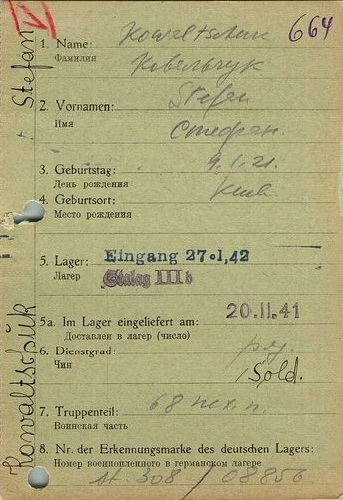 Stefan
Kowaltschuk
664
1. Name: Kowaltschuk
Фамилия Ковальчук
2. Vornamen: Stefan
Имя Стефан.
3. Geburtstag: 9.1.21.
День рождения
4. Geburtsort: Киев.
Место рождения
5. Lager: Eingang 27.1.42
Лагер Stalag III b
5a. Im Lager eingeliefert am: 20.11.41
Доставлен в лагер (число)
6. Dienstgrad: ряд.
Чин Sold.
7. Truppenteil: 68 пех. п.
Воинская часть
8. Nr. der Erkennungsmarke des deutschen Lagers:
Номер военнопленного в германском лагере
st. 308 / 08856